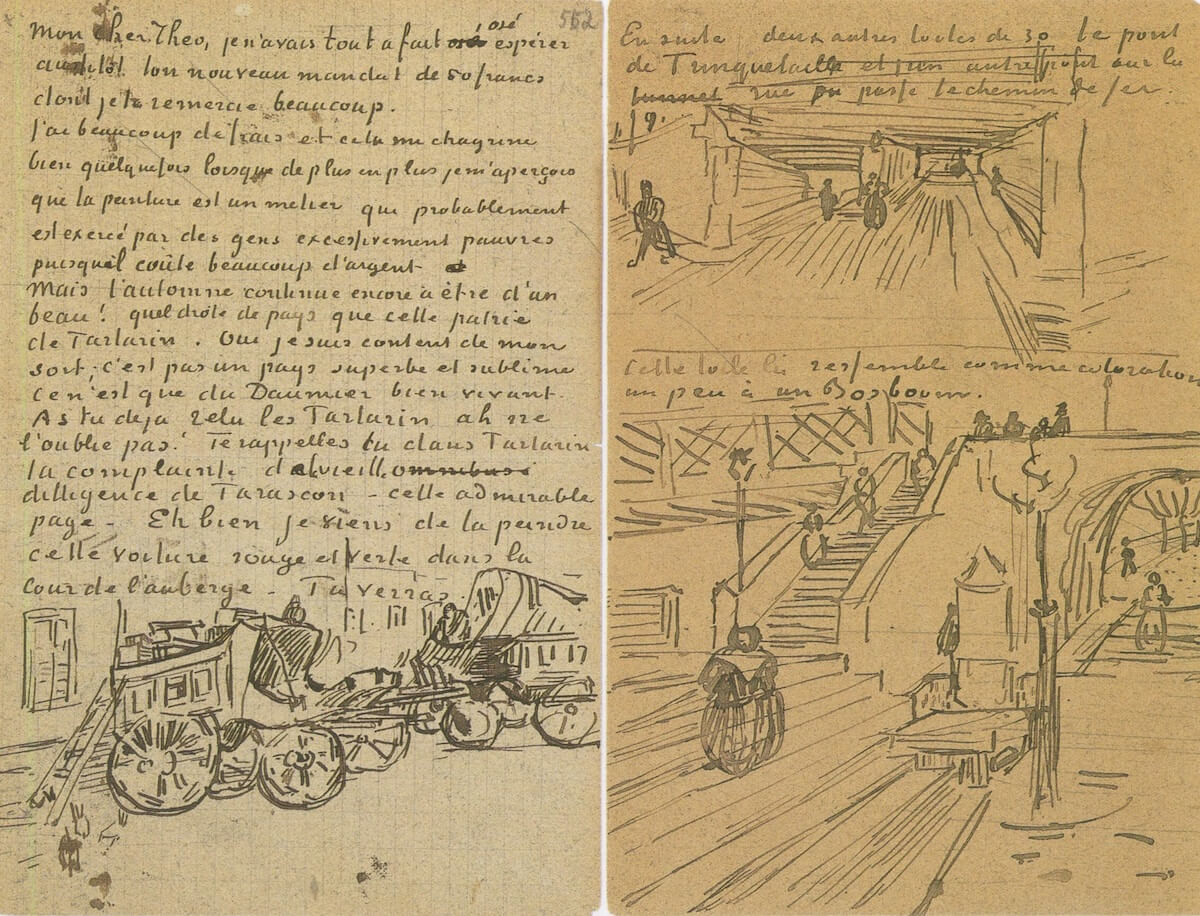 552
Mon cher Theo, je n'avais tout a fait osé osé espérer
aussitôt ton nouveau mandat de 50 francs
dont je te remercie beaucoup.
J'ai beaucoup de frais et cela me chagrine
bien quelquefois lorsque de plus en plus je m'aperçois
que la peinture est un metier qui probablement
est exercé par des gens excessivement pauvres
puisqu'il coûte beaucoup d'argent
Mais l'automne continue encore a être d'un
beau! quel drôle de pays que cette patrie
de Tartarin. Oui je suis content de mon
sort, c'est pas un pays superbe et sublime
ce n'est que du Daumier bien vivant.
As tu deja relu les Tartarin ah ne
l'oublie pas! Te rappelles tu dans Tartarin
la complainte de la vieille omnibus
dilligence de Tarascon - celle admirable
page - Eh bien je viens de la peindre
cette voiture rouge et verte dans la
cour de l'auberge - Tu verras.
En suite deux autres toiles de 30 le pont
de Trinquetaille et un autre pont sur la
tunnel rue ou passe le chemin de fer.
Cette toile ci ressemble comme coloration
un peu à un Bosboom.